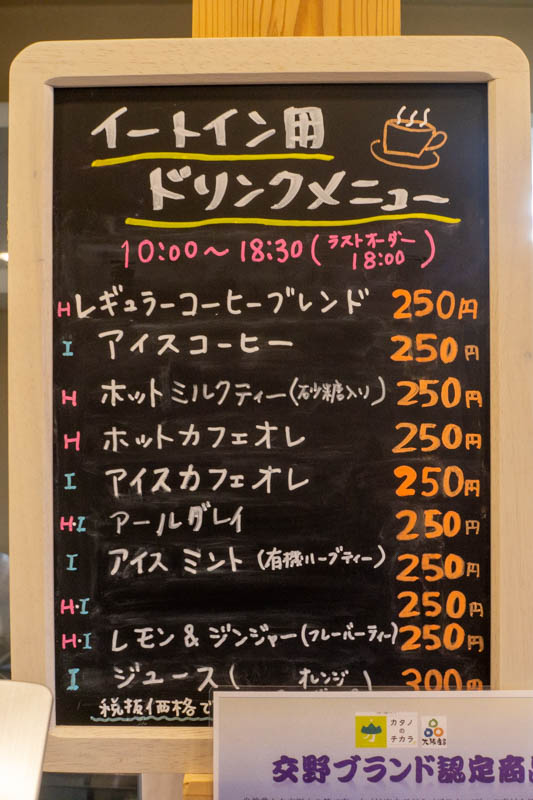 イートイン用
ドリンクメニュー
10:00〜18:30(ラストオーダー 18:00)
H レギュラーコーヒーブレンド 250円
I アイスコーヒー 250円
H ホットミルクティー(砂糖入り) 250円
H ホットカフェオレ 250円
I アイスカフェオレ 250円
H・I アールグレイ 250円
I アイス ミント (有機ハーブティー) 250円
H・I 250円
H・I レモン & ジンジャー(フレーバーティー) 250円
I ジュース( オレンジ 300円
税抜価格で
カタノのチカラ
交野ブランド認定商品